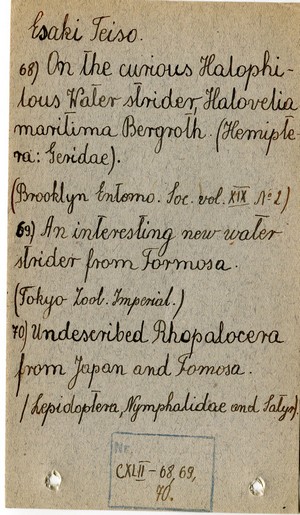 Esaki Teiso.
68) On the curious Halophi-
lous Water strider, Halovelia
maritima Bergroth. (Hemipte-
ra: Geridae).
(Brooklyn Entomo. Soc. vol. XIX № 2)
69) An interesting new water
strider from Formosa.
(Tokyo Zool. Imperial.)
70) Undescribed Rhopalocera
from Japan and Fomosa.
(Lepidoptera, Nymphalidae and Satyr).
Nr.
CXLII - 68, 69,
70.